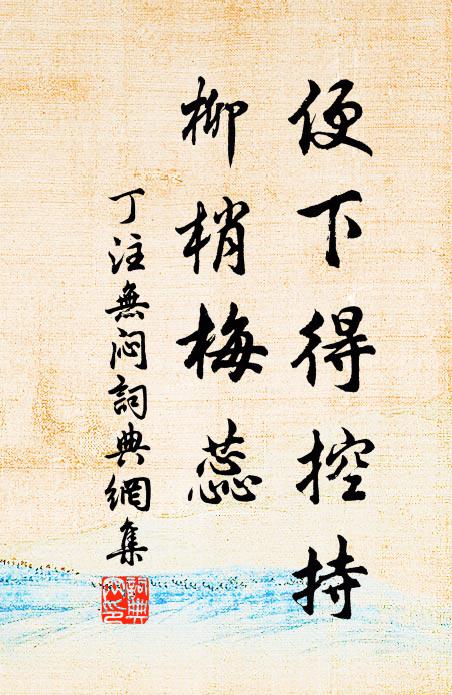 便下得控持
柳梢梅蕊
丁注無悶詞典網集
詞典